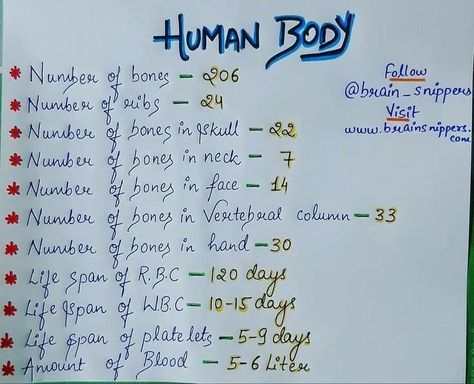 HUMAN BODY
* Number of bones — 206
* Number of ribs — 24
* Number of bones in skull — 22
* Number of bones in neck — 7
* Number of bones in face — 14
* Number of bones in Vertebral column — 33
* Number of bones in hand — 30
* Life span of R.B.C — 120 days
* Life span of W.B.C — 10-15 days
* Life span of platelets — 5-9 days
* Amount of Blood — 5-6 Liter
Follow
@brain_snippers
Visit
www.brainsnippers.
com